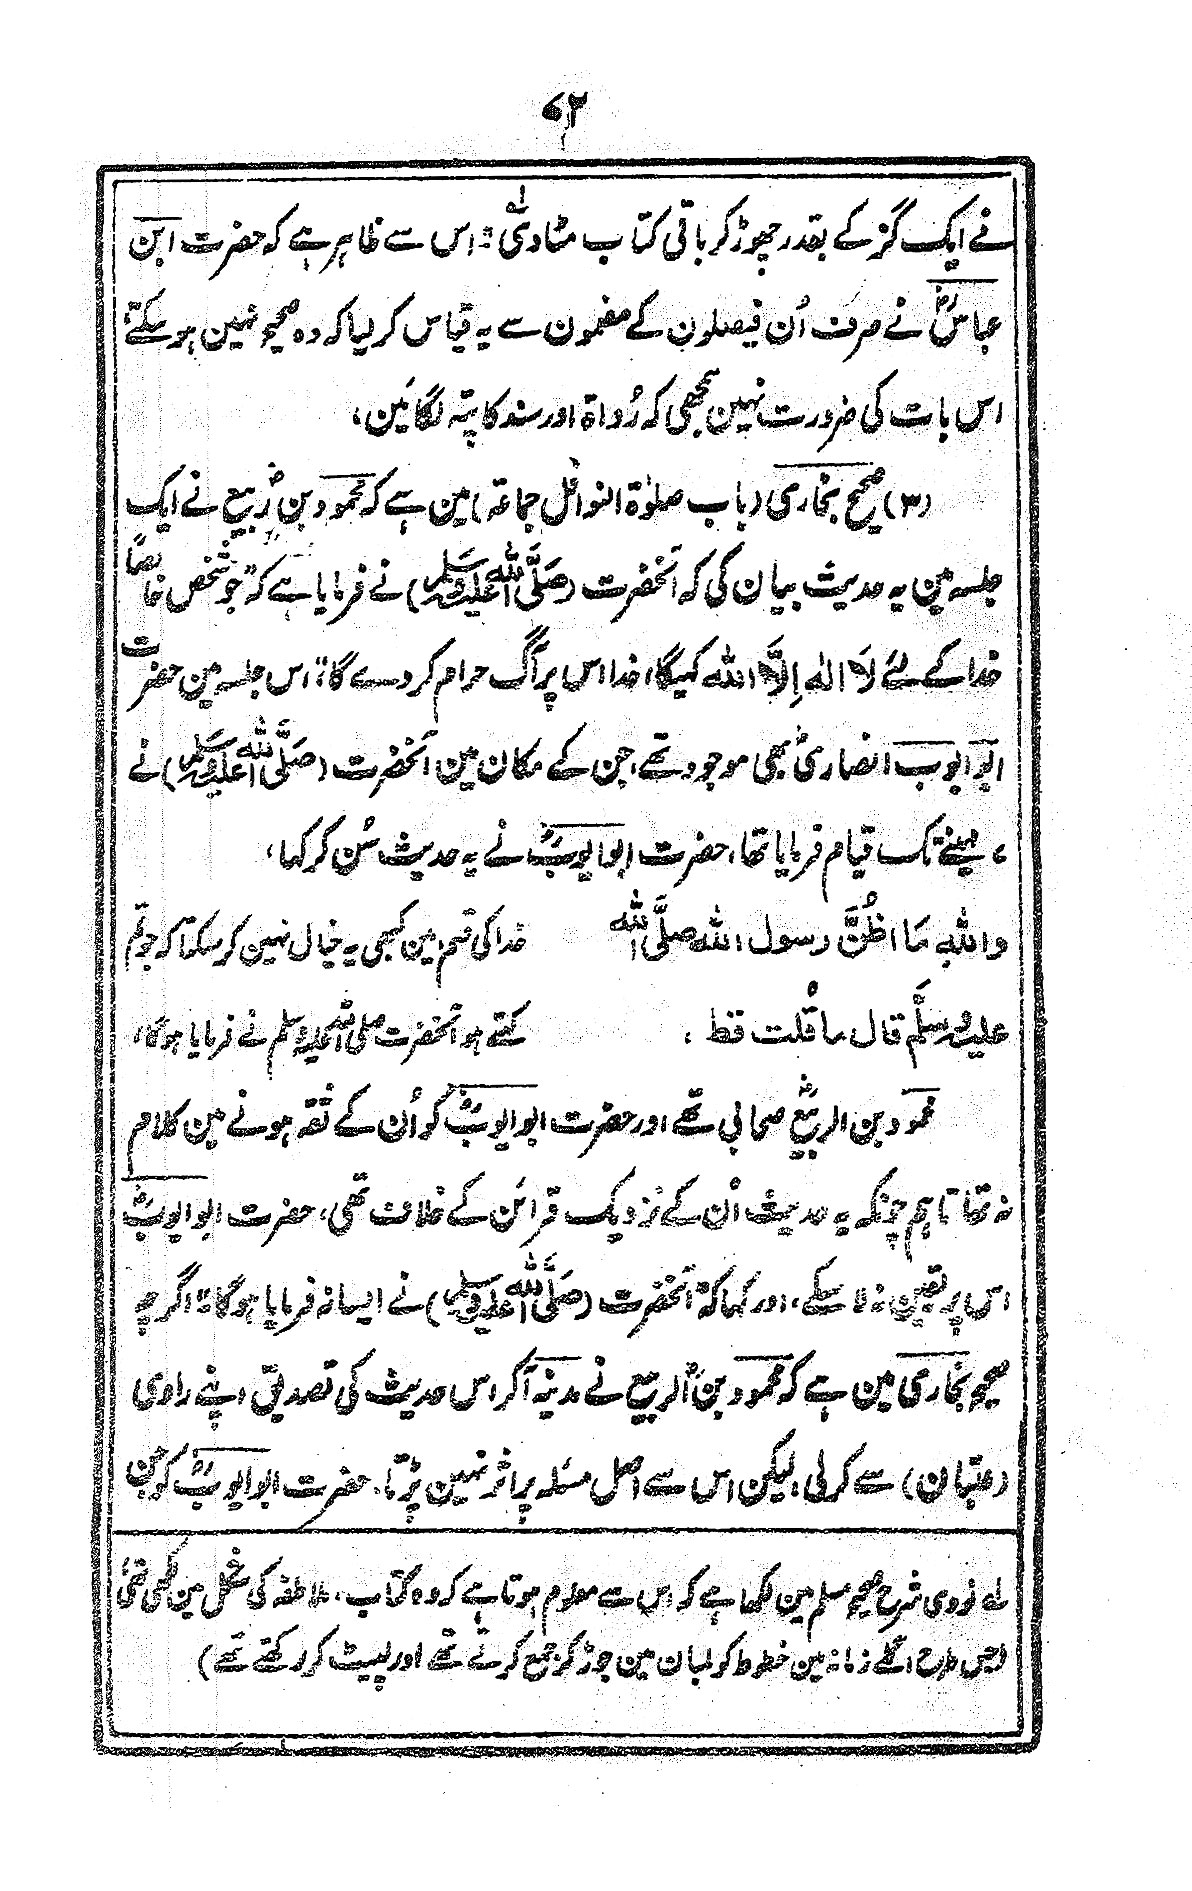 ۶۲
نے ایک گز کے بقدر چھوڑ کر باقی کتاب مٹا دی لہ "اس سے ظاہر ہے کہ حضرت ابن
عباسؓ نے صرف اُن فیصلون کے مضمون سے یہ قیاس کر لیا کہ وہ صحیح نہین ہو سکتے،
اس بات کی ضرورت نہین سمجھی کہ رُواۃ اور سند کا پتہ لگائین،
(۳) صحیح بخاری (باب صلوٰۃ النوافل جماعۃ) مین ہے کہ محمود بن ربیعؓ نے ایک
جلسہ مین یہ حدیث بیان کی کہ آنحضرت (صَلَّی اللہ علیہ وسلم) نے فرمایا ہے کہ "جو شخص خالصًا
خدا کے لئے لَا الٰہ اِلَّا اللہ کہیگا، خدا اس پر آگ حرام کر دے گا" اس جلسہ مین حضرت
ابو ایوب انصاریؓ بھی موجود تھے، جن کے مکان مین آنحضرت (صَلَّی اللہ علیہ وسلم) نے
۷ مہینے تک قیام فرمایا تھا، حضرت ابو ایوبؓ نے یہ حدیث سُن کر کہا،
واللہِ مَا اظُنُّ رسول اللہ صلَّی اللہ خدا کی قسم مین کبھی یہ خیال نہین کر سکتا کہ جو تم
علیہ وسلَّم قال ما قُلت قط، کہتے ہو آنحضرت صلی اللہ علیہ وسلم نے فرمایا ہوگا،
محمود بن الربیعؓ صحابی تھے اور حضرت ابو ایوبؓ کو اُن کے ثقہ ہونے مین کلام
نہ تھا تاہم چونکہ یہ حدیث اُن کے نزدیک قرائن کے خلاف تھی، حضرت ابو ایوبؓ
اس پر یقین نہ لا سکے، اور کہا کہ "آنحضرت (صَلَّی اللہ علیہ وسلم) نے ایسا نہ فرمایا ہوگا" اگرچہ
صحیح بخاری مین ہے کہ محمود بن الربیعؓ نے مدینہ آکر اس حدیث کی تصدیق اپنے راوی
(عتبان) سے کر لی، لیکن اس سے اصل مسئلہ پر اثر نہین پڑتا، حضرت ابو ایوبؓ کو جن
لہ نووی شرح صحیح مسلم مین لکھا ہے کہ اس سے معلوم ہوتا ہے کہ وہ کتاب، ملاطفہ کی شکل مین لکھی تھی
(جس طرح اگلے زمانہ مین خطوط کو لمبان مین جوڑ کر جمع کرتے تھے اور لپیٹ کر رکھتے تھے)